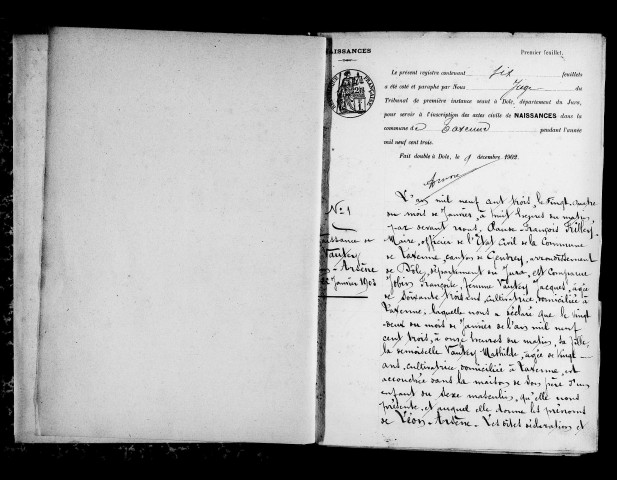 NAISSANCES
Premier feuillet.
Le présent registre contenant Six feuillets
a été coté et paraphé par Nous Juge du
Tribunal de première instance séant à Dole, département du Jura,
pour servir à l'inscription des actes civils de NAISSANCES dans la
commune de Taxenne pendant l'année
mil neuf cent trois.
Fait double à Dole, le 9 décembre 1902.
N° 1
Naissance de
Vautey
Léon-Arsène
22 Janvier 1903
L'an mil neuf cent trois, le vingt-quatre
du mois de Janvier, à huit heures du matin,
par devant nous, Claude-François
Maire, officier de l'Etat Civil de la Commune
de Taxenne, canton de Gendrey, arrondissement
de Dôle, département du Jura, est comparue
Jobin Françoise, femme Vautey Jacques, âgée
de soixante trois ans, cultivatrice, domiciliée à
Taxenne, laquelle nous a déclaré que le vingt
-deux du mois de Janvier de l'an mil neuf
cent trois, à onze heures du matin, sa fille
la demoiselle Vautey Mathilde, âgée de vingt
ans, cultivatrice, domiciliée à Taxenne, est
accouchée dans la maison de son père d'un
enfant du sexe masculin, qu'elle nous
présente, et auquel elle donne les prénoms
de Léon-Arsène. Les dites déclaration et